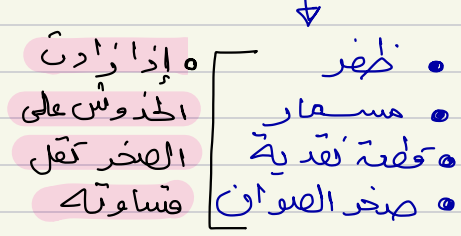 ظفر
مسمار
قطعة نقدية
صخر الصوان
إذا زادت
الخدوش على
الصخر تقل
قساوته